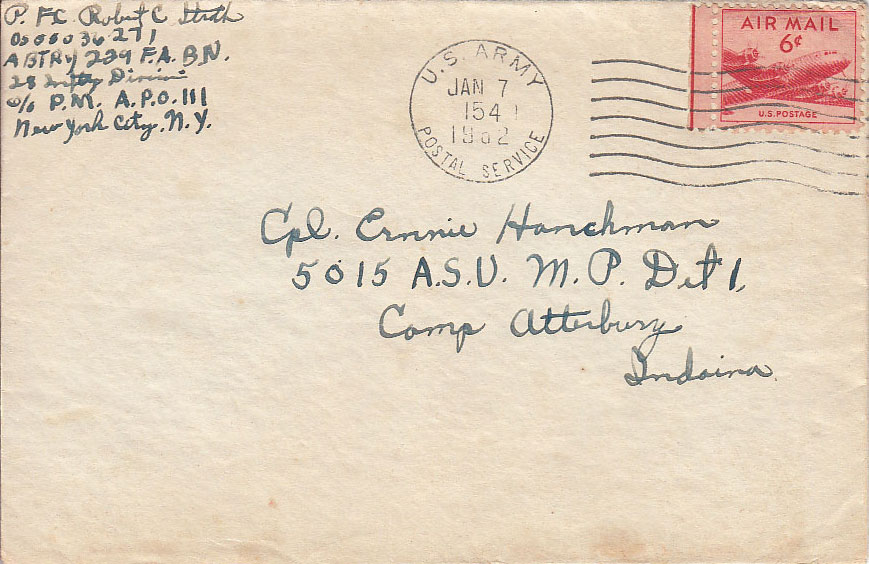 P. F.C. Robert C Stroth
A BTRy 229 F.A. B.N.
28 Inftry Divisi
c/o P.M. A.P.O. 111
New York City, N.Y.
U.S. ARMY
JAN 7
154
1952
POSTAL SERVICE
AIR MAIL
6¢
U.S. POSTAGE
Cpl. Ernnie Hanchman
5015 A.S.U. M.P. Det 1,
Camp Atterbury
Indaina